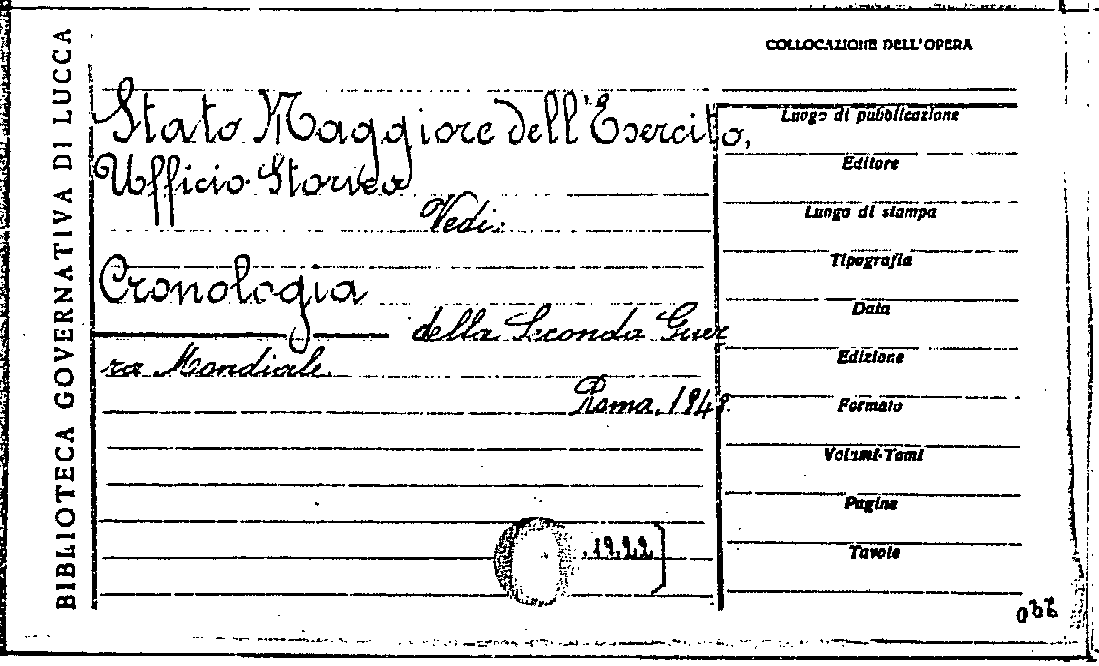 BIBLIOTECA GOVERNATIVA DI LUCCA
COLLOCAZIONE DELL'OPERA
Stato Maggiore dell'Esercito,
Ufficio Storico
Vedi:
Cronologia
della Seconda Guer
ra Mondiale.
Roma, 1948.
Luogo di pubblicazione
Editore
Luogo di stampa
Tipografia
Data
Edizione
Formato
Volumi-Tomi
Pagine
Tavole